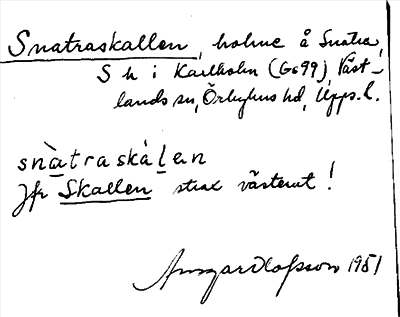 Snatraskallen, holme å Snatra,
S h i Karlholm (Gs99), Väst-
lands sn, Örbyhus hd, Upps. l.
snàtraskálen
Jfr Skallen strax västerut!
Ansgar Olofsson 1951